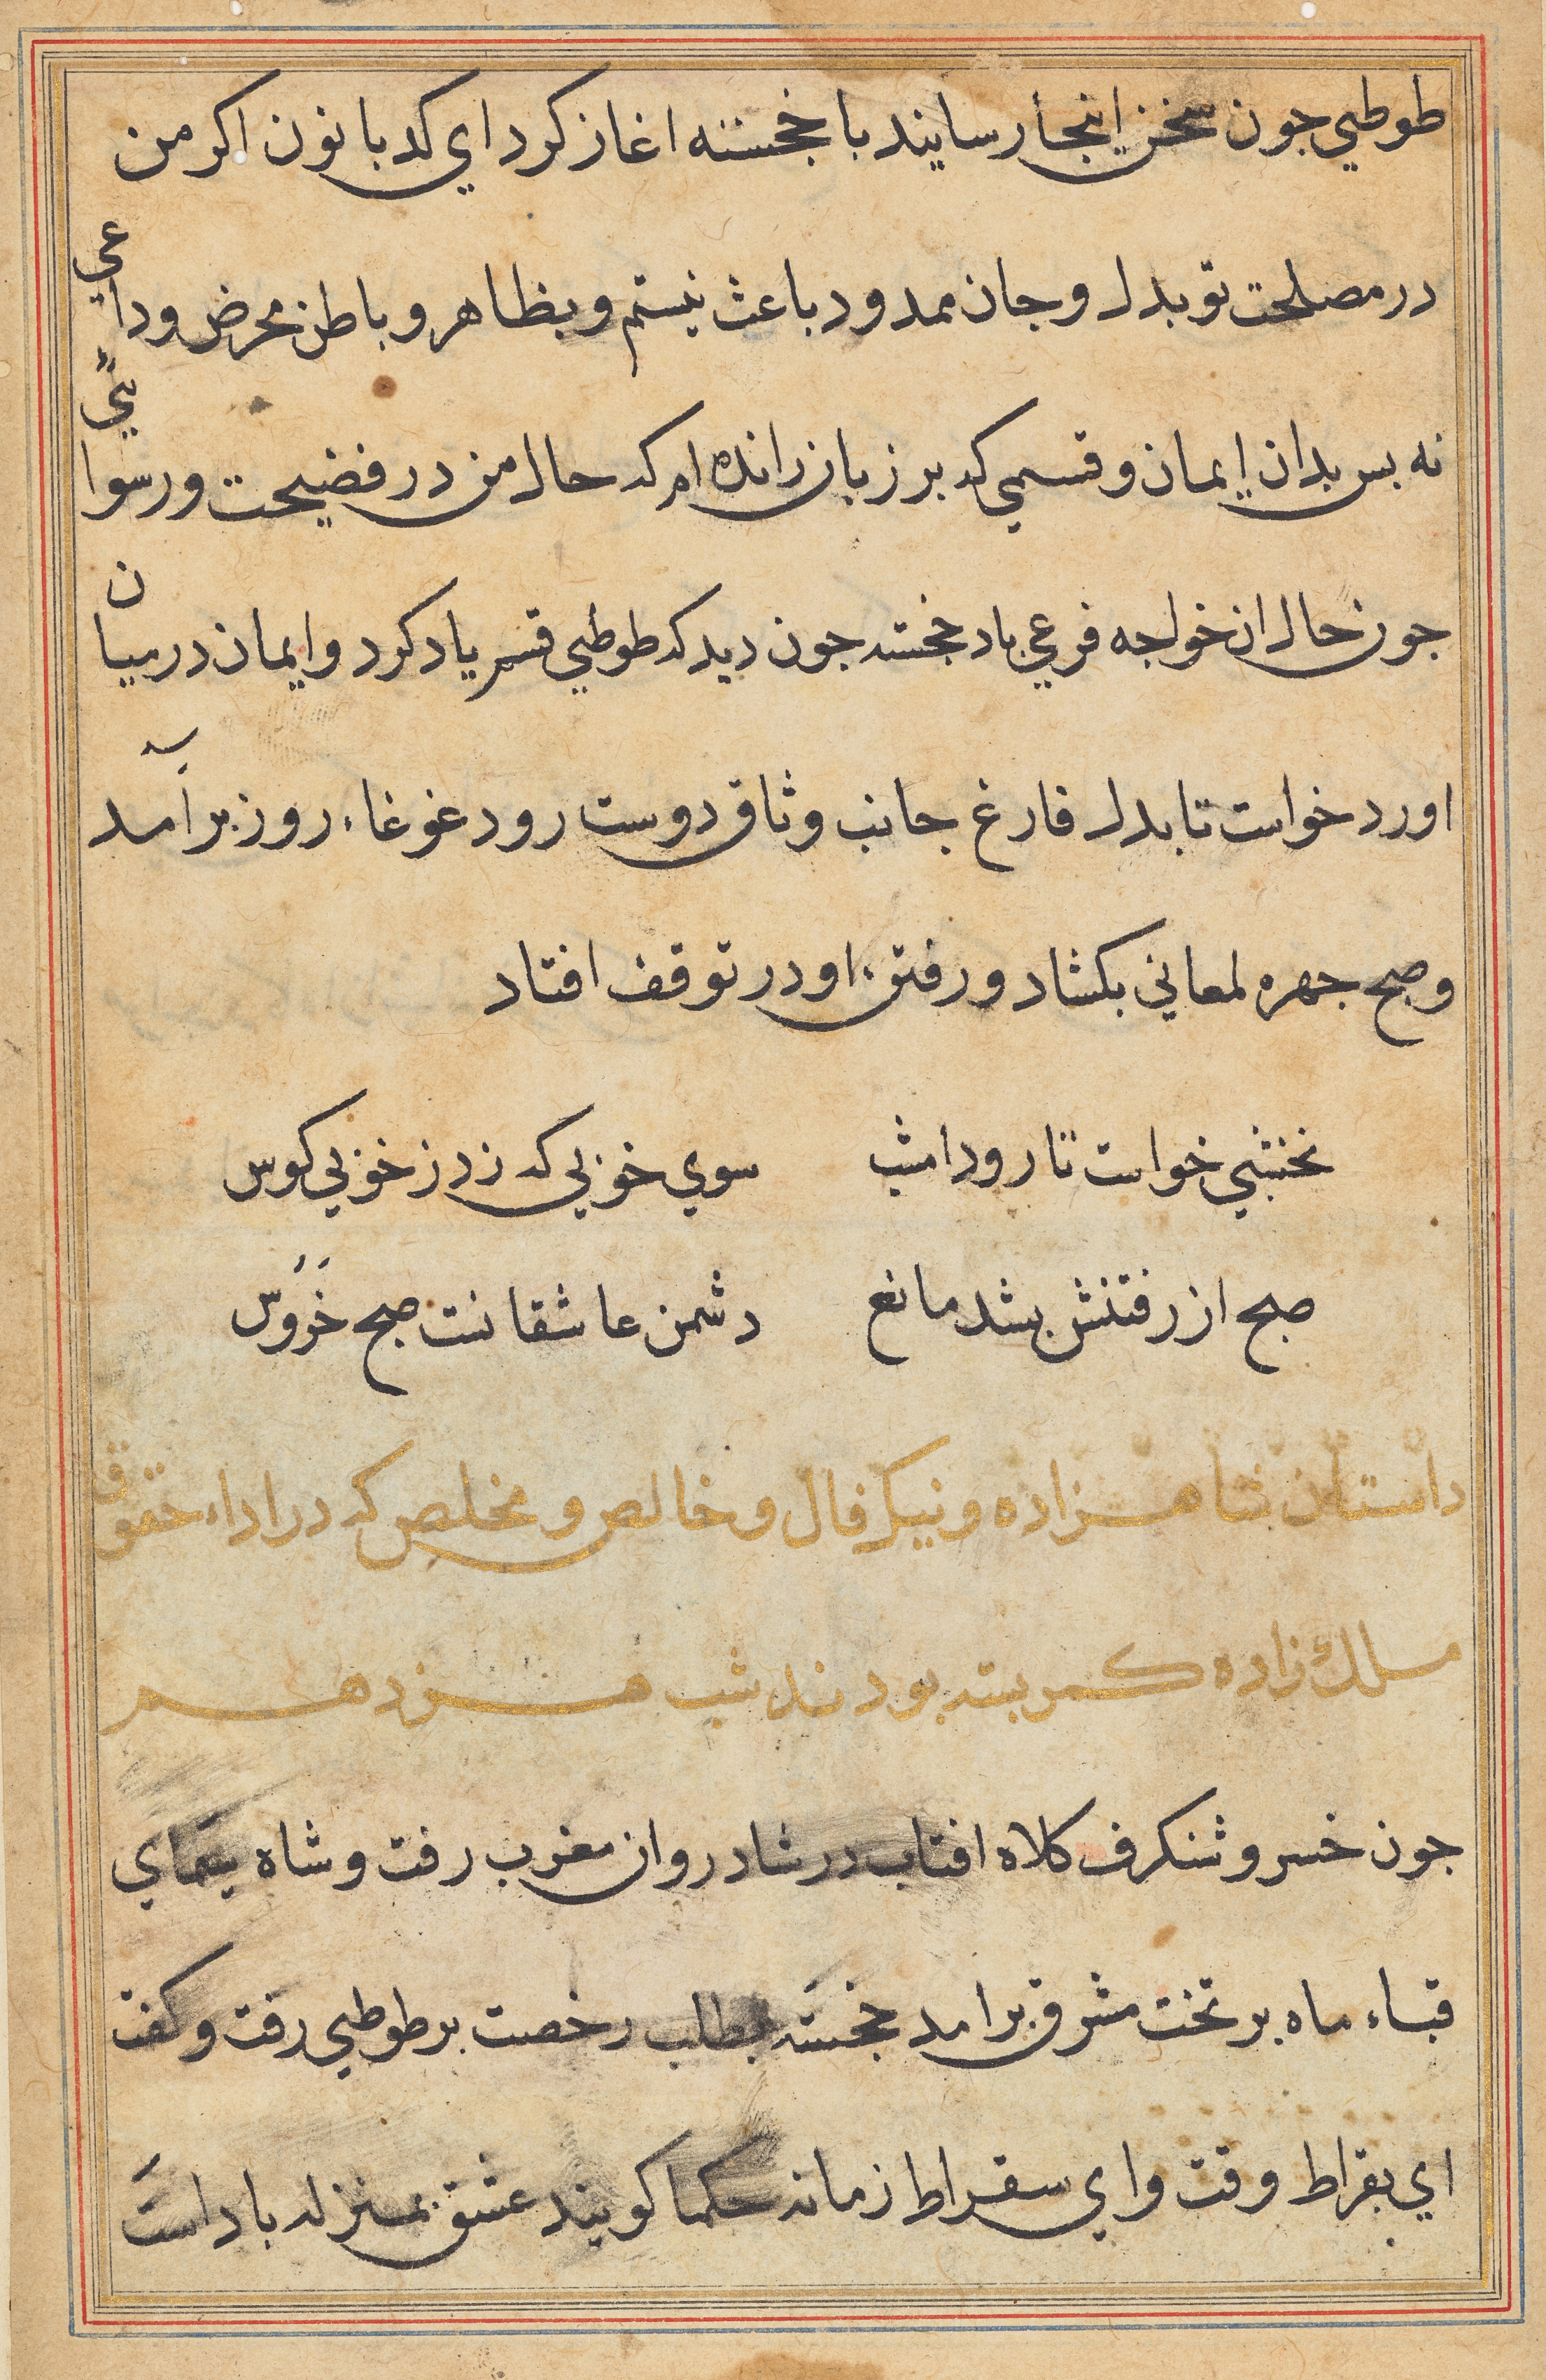 طوطي جون سخن اينجا رسايند با خجسته اغاز كرد اي كد بانون اكر من
در مصلحت تو بدل و جان ممد ود باعث نيستم و بظاهر و باطن محرض و داعي
نه بس بدان ايمان و قسمي كه بر زبان رانده ام كه حال من در فضيحت و رسوايي
جون حال ان خواجه فرعي باد خجسته جون ديد كه طوطي قسم ياد كرد و ايمان در ميان
اورد خواست تا بدل فارغ جانب وثاق دوست رود غوغاء روز برآمد
و صبح جهره لمعاني بكشاد و رفتن او در توقف افتاد
نخشبي خواست تا رود امشب سوي خوبي كه زد ز خوبي كوس
صبح از رفتنش بشد مانع دشمن عاشقانست صبح خروس
داستان شاهزاده و نيك فال و خالص و مخلص كه در اداء حقوق
ملك زاده كمر بسته بودند شب هزدهم
جون خسرو شنكرف كلاه افتاب در شادروان مغرب رفت و شاه سيماي
قباء ماه بر تخت مشرق برامد خجسته بطلب رخصت بر طوطي رفت و كفت
اي بقراط وقت و اي سقراط زمانه حكما كويند عشق بمنزله باد است